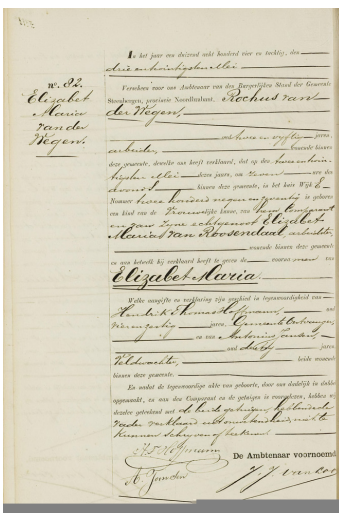 In het jaar een duizend acht honderd vier en tachtig, den
drie en twintigsten Mei
Verscheen voor ons Ambtenaar van den Burgerlijken Stand der Gemeente
Steenbergen, provincie Noordbrabant, Rochus van
der Wegen,
oud twee en vijftig jaren,
arbeider, binnen
deze gemeente, dewelke ons heeft verklaard, dat op den twee en twin-
tigsten Mei dezes jaars, ten zeven ure des
avonds binnen deze gemeente, in het huis Wijk E
Nommer twee honderd negen en is geboren
een kind van de Vrouwelijke kunne, van hem Comparant
en van zijne echtgenoot Elizabet
Maria van Roosendaal, arbeidster,
wonende binnen deze gemeente
en aan hetwelk hij verklaard heeft te geven de voornamen van
Elizabet Maria.
Welke aangifte en verklaring zijn geschied in tegenwoordigheid van
Hendrik Thomas Hoffmann, oud
vier en zestig jaren, Gemeente Ontvanger,
en van Antonius Jansen,
oud jaren
Veldwachter, beide wonende
binnen deze gemeente.
En is de tegenwoordige akte van geboorte, door ons dadelijk in dubbel
opgemaakt, en aan den Comparant en de getuigen is voorgelezen, hebben wij
dezelve geteekend met de beide getuigen, hebbende
vader verklaard niet te
kunnen schrijven
H T Hoffmann
De Ambtenaar voornoemd
A. Jansen
J. J. van
No. 82.
Elizabet
Maria
van der
Wegen.